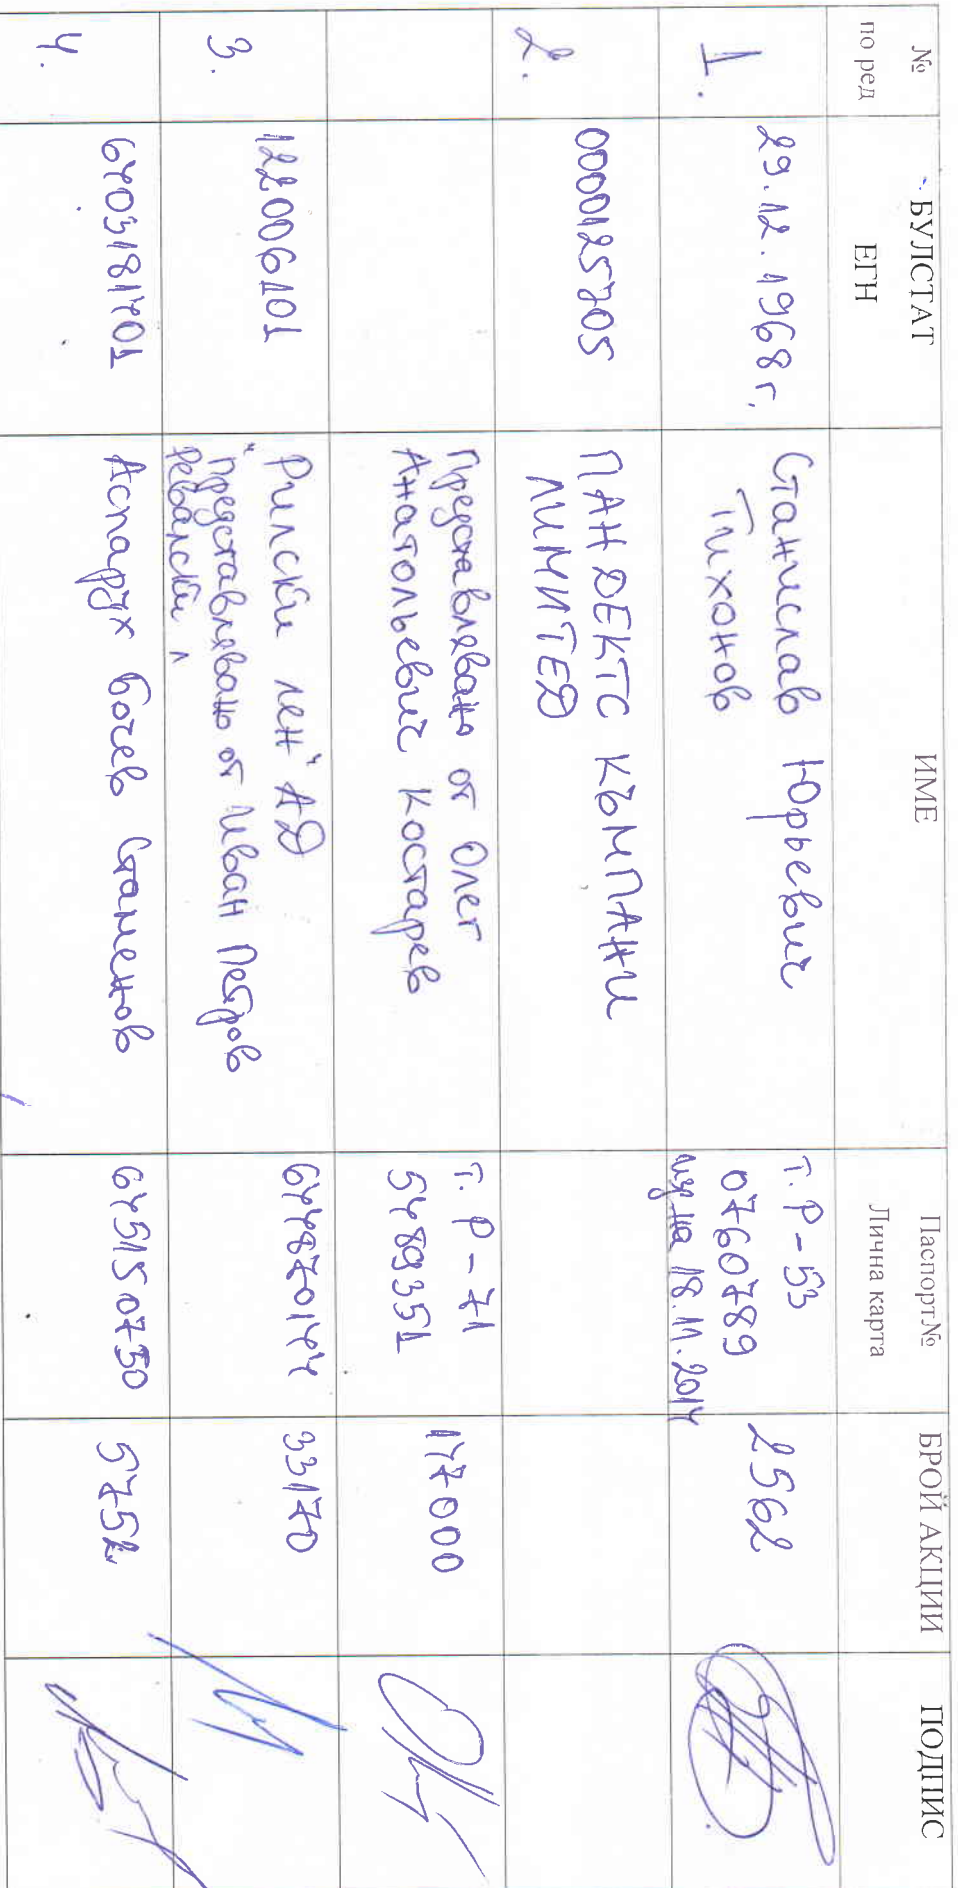 №
по ред
БУЛСТАТ
ЕГН
ИМЕ
Паспорт№
Лична карта
БРОЙ АКЦИИ
ПОДПИС
1.
29.12.1968г.
Станислав Юрьевич
Тихонов
т. Р-53
0760789
изд. на 18.11.2014
2562
2.
0000125705
ПАНДЕКТС КЪМПАНИ
ЛИМИТЕД
Представлявано от Олег
Анатольевич Костарев
т. Р-71
5489351
177000
3.
122006101
Рилски лен" АД
"представлявано от Иван Петров
Ревалски
644870144
33170
4.
6403181401
Аспарух Бочев Стаменов
6451507 30
5752